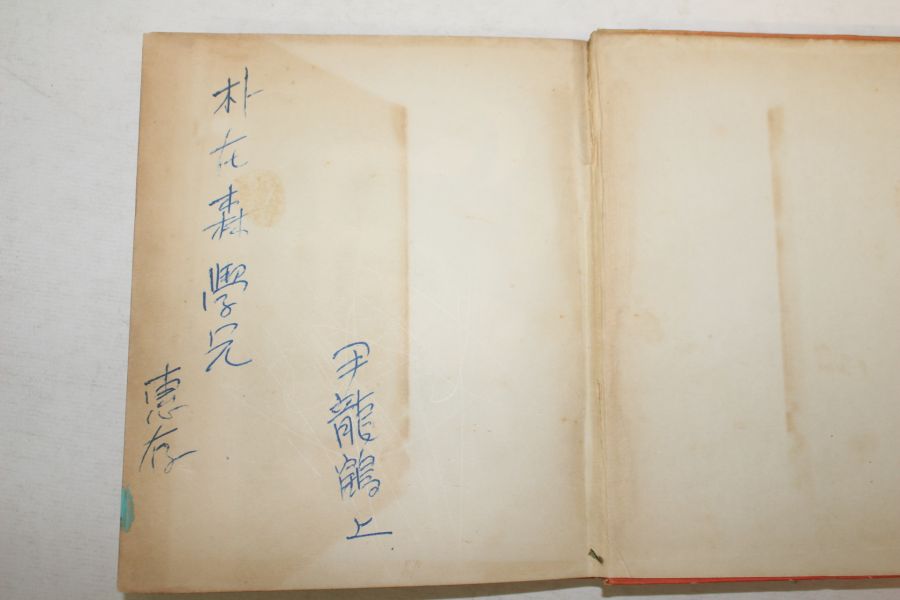 朴在森 學兄
惠存
尹龍鶴 上